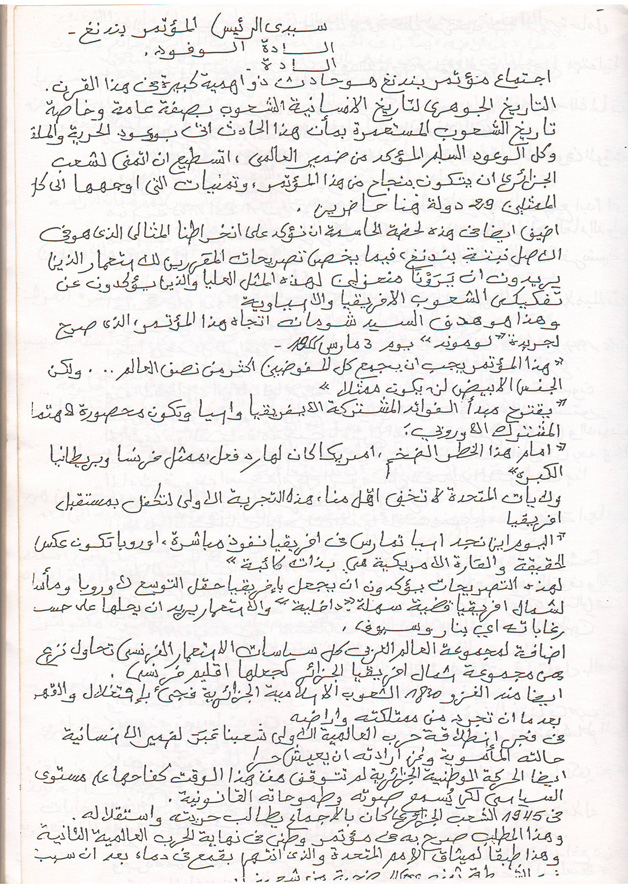 سيدي الرئيس المؤتمر بندنغ -
السادة الوفود.
السادة.
اجتماع مؤتمر بندنغ هو حادث ذو اهمية كبيرة في هذا القرن.
التاريخ الجوهري لتاريخ الانسانية الشعوب بصفة عامة وخاصة
تاريخ الشعوب المستعمرة بمأن هذا الحادث اتى بوعود الحرية والملة
وكل الوعود السلم المؤكد من ضمير العالمي، استطيع ان اتمنى لشعب
الجزائري ان يتكون بنجاح من هذا المؤتمر، وتمنيات التي اوجهها الى كل
الممثلين 29 دولة هنا حاضرين.
اضيف ايضا في هذه لحضة الحاسمة ان نؤكد على انخراطنا المثالي الذي هو في
الاصل نبتة بندنغ، فيما يخص تصريحات المقررين للاستعمار الذين
يريدون ان يَرَوْنَا منعزلين لهذه المثل العليا والذين يؤكدون عن
تفكيك الشعوب الافريقيا والاسياوية
وهذا هو هدف السيد شومان اتجاه هذا المؤتمر الذي صرح
لجريدة "لوموند" يوم 3 مارس -
"هذا المؤتمر يجب ان يجمع كل المفوضين اكثر من نصف العالم... ولكن
الجنس الابيض لن يكون ممثلا"
"يقترح مبدأ الفوائد المشتركة لافريقيا واسيا وتكون محصورة لاهتما
المشترك الاوروبي"
"امام هذا الخطر الضخم، امريكا كان لها رد فعل، ممثل فرنسا وبريطانيا
الكبرة"
ولايات المتحدة لا تخفى اقل منا، هذه التجربة الاولى لتكفل بمستقبل
افريقيا
"اليوم اين نجد اسيا تمارس في افريقيا نفوذ مباشرة، اوروبا تكون عكس
الحقيقة والقارة الامريكية هي بذات كافية"
لهذه التصريحات يؤكدون ان يجعل بإفريقيا حقل التوسع لاوروبا ومأسا
لشمال افريقيا قضية سهلة "داخلية" والاستعمار يريد ان يحلها على حسب
رغاباته اي بنار وسيوف.
اضافة لمجموعة العالم العربي كل سياسات الاستعمار الفرنسي تحاول نزع
من مجموعة اشمال افريقيا الجزائر كجعلها اقليم فرنسي.
ايضا منذ الغزو 1830 الشعوب الاسلامية الجزائرية فجئ بإستقلال والقهر
بعدما ان تجرد من ممتلكته واراضه
في فجر انطلاقة حرب العالمية الاولى شعبنا عبّر لضمير الانسانية
حالته المأسوية وعن ارادته ان يعيش حرا
ايضا الحركة الوطنية الجزائرية لم تتوقف من هذا الوقت كفاحها على مستوى
السياسي لكي يُسمع صوته وطموحاته القانونية.
في 1945 الشعب الجزائري كان بالاجماع يطالب حريته واستقلاله.
وهذا المطلب صرح به في مؤتمر وطني في نهاية الحرب العالمية الثانية
وهذا طبقا لميثاق الامم المتحدة والذي انتهى بقمع في دماء بعد ان سبب